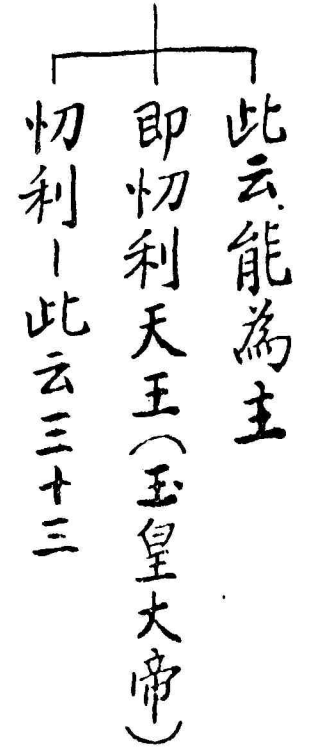 此云能為主
即忉利天王(玉皇大帝)
忉利-此云三十三